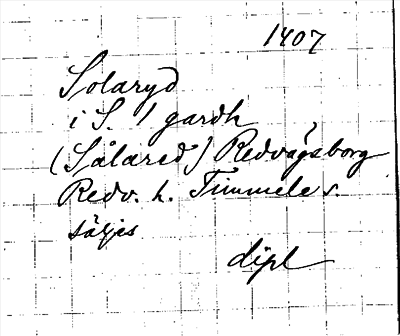 1407
Solaryd
i S. 1 gardh
(Sålared) Redvägsborg
Redv. h. Timmele s.
säljes
dipl